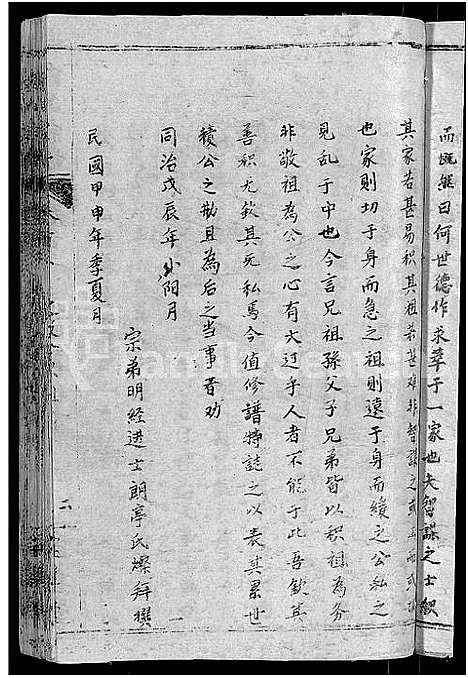 而慨然曰何世德作求萃于一家也夫智謀之士
其家若甚易积其祖若甚难非智謀之
也家则切于身而急之祖则遠于身而緩之公私之
見乱于中也今言兄祖孫父子兄弟皆以积祖為务
非敬祖為公之心有大过乎人者不能于此吾欽其
善积尤欽其无私焉今值修譜特誌之以表其累世
積公之勤且為后之当事者劝
同治戊辰年小阳月
宗弟明经进士朗亭氏燦拜撰
民國甲申年季夏月